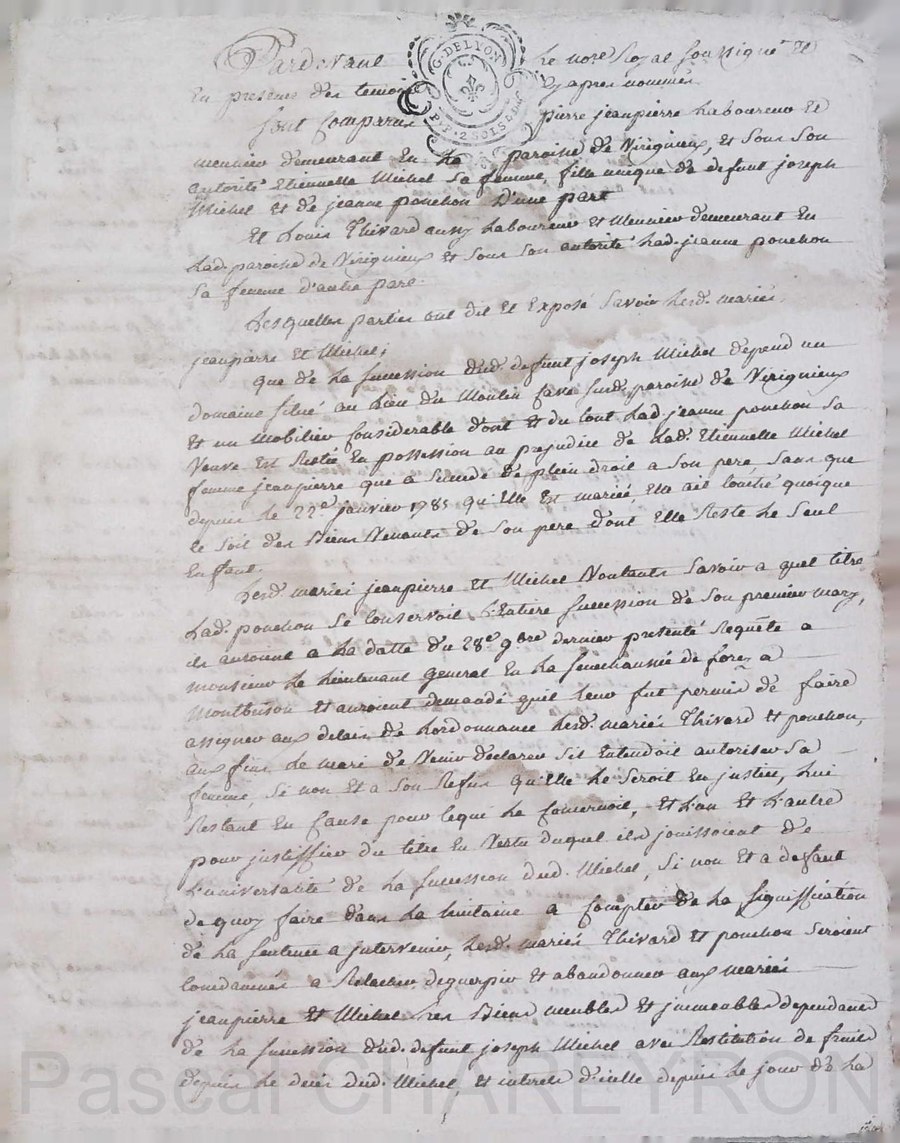 Pardevant le nore Royal soussigné et
En presence des temoins cy apres nommés
sont comparus pierre jeanpierre laboureur et
meunier demeurant en la paroisse de Virignieux, et sous son
autorité Etiennette Michel sa femme, fille unique de defunt joseph
Michel et de jeanne ponchon d'une part
Et Louis Thivard aussy laboureur et Meunier demeurant en
lad. paroisse de Virignieux et sous son autorité lad. jeanne ponchon
sa femme d'autre part.
Lesquelles parties ont dit et Exposé savoir lesd. mariés
jeanpierre et Michel;
que de la succession dud. defunt joseph Michel depend un
domaine situé au lieu du Moulin sur lad. paroisse de Virignieux
et un mobilier considerable dont et du tout lad. jeanne ponchon sa
Veuve est Restée en possession au prejudice de lad. Etiennette Michel
femme jeanpierre que a succédé de plein droit a son pere, sans que
depuis le 22e janvier 1785 qu'Elle est mariée, Elle ait touché quoique
ce soit des Biens Venants de son pere dont Elle Reste le seul
Enfant.
Lesd. mariés jeanpierre et Michel Voulants savoir a quel titre
lad. ponchon se conservoit l'Entiere succession de son premier mary,
ils auroient a la datte du 28e 9bre dernier presenté Requête a
monsieur le Lieutenant General En la senechaussée de forez a
Montbrison et auroient demandé qu'il leur fut permis de faire
assigner aux delais de l'ordonnance lesd. mariés Thivard et ponchon,
aux fins le mari de Venir declarer s'il Entendoit autoriser sa
femme, si non et a son Refus qu'Elle le seroit En justice, lui
Restant En cause pour ce qui le concernoit, et l'un et l'autre
pour justiffier du titre En Vertu duquel ils jouissoient de
L'universalité de la succession dud. Michel, si non et a deffaut
de quoy faire dans la huitaine a compter de la signiffication
de la sentence a jntervenir, lesd. mariés Thivard et ponchon seroient
condamnés a Relacher deguerpir et abandonner aux mariés
jeanpierre et Michel les Biens meubles et jmmeubles dependants
de la succession dud. defunt joseph Michel avec Restitution de fruits
depuis le deces dud. Michel, et interets d'iceux depuis le jour de la
G. DE LYON
P.P. 2 SOLS
Pascal CHAREYRON